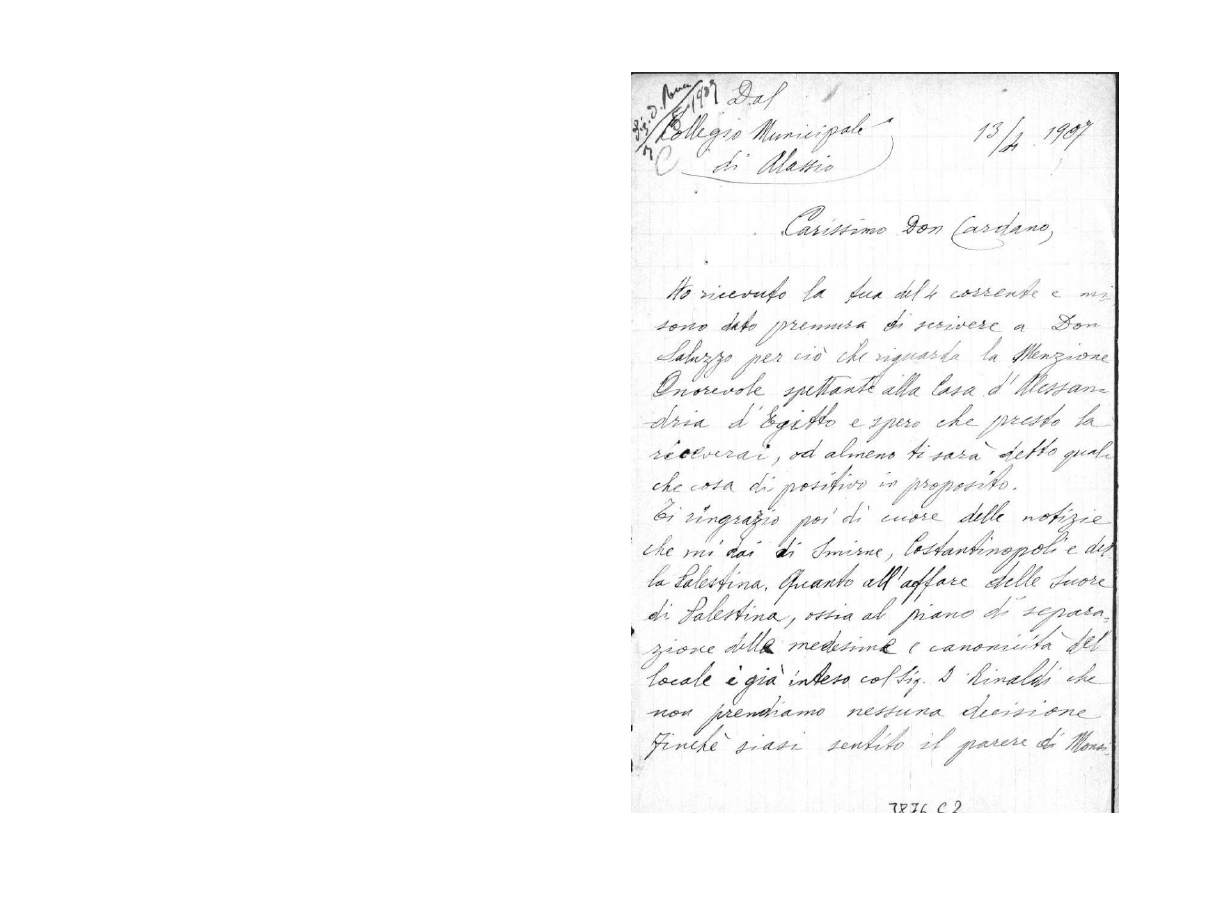 Dal
Collegio Municipale
di Alassio
13/4 1907
Carissimo Don Cardano,
Ho ricevuto la tua del 4 corrente e mi
sono dato premura di scrivere a Don
Saluzzo per ciò che riguarda la Menzione
Onorevole spettante alla Casa d'Alessan-
dria d'Egitto e spero che presto la
riceverai, od almeno ti sarà detto qual-
che cosa di positivo in proposito.
Ti ringrazio poi di cuore delle notizie
che mi dai di Smirne, Costantinopoli e del-
la Palestina. Quanto all'affare delle Suore
di Palestina, ossia al piano di separa-
zione delle medesime e canonicità del
locale è già inteso col Sig. D Rinaldi che
non prendiamo nessuna decisione
finchè siasi sentito il parere di Monsi-
3876 C2